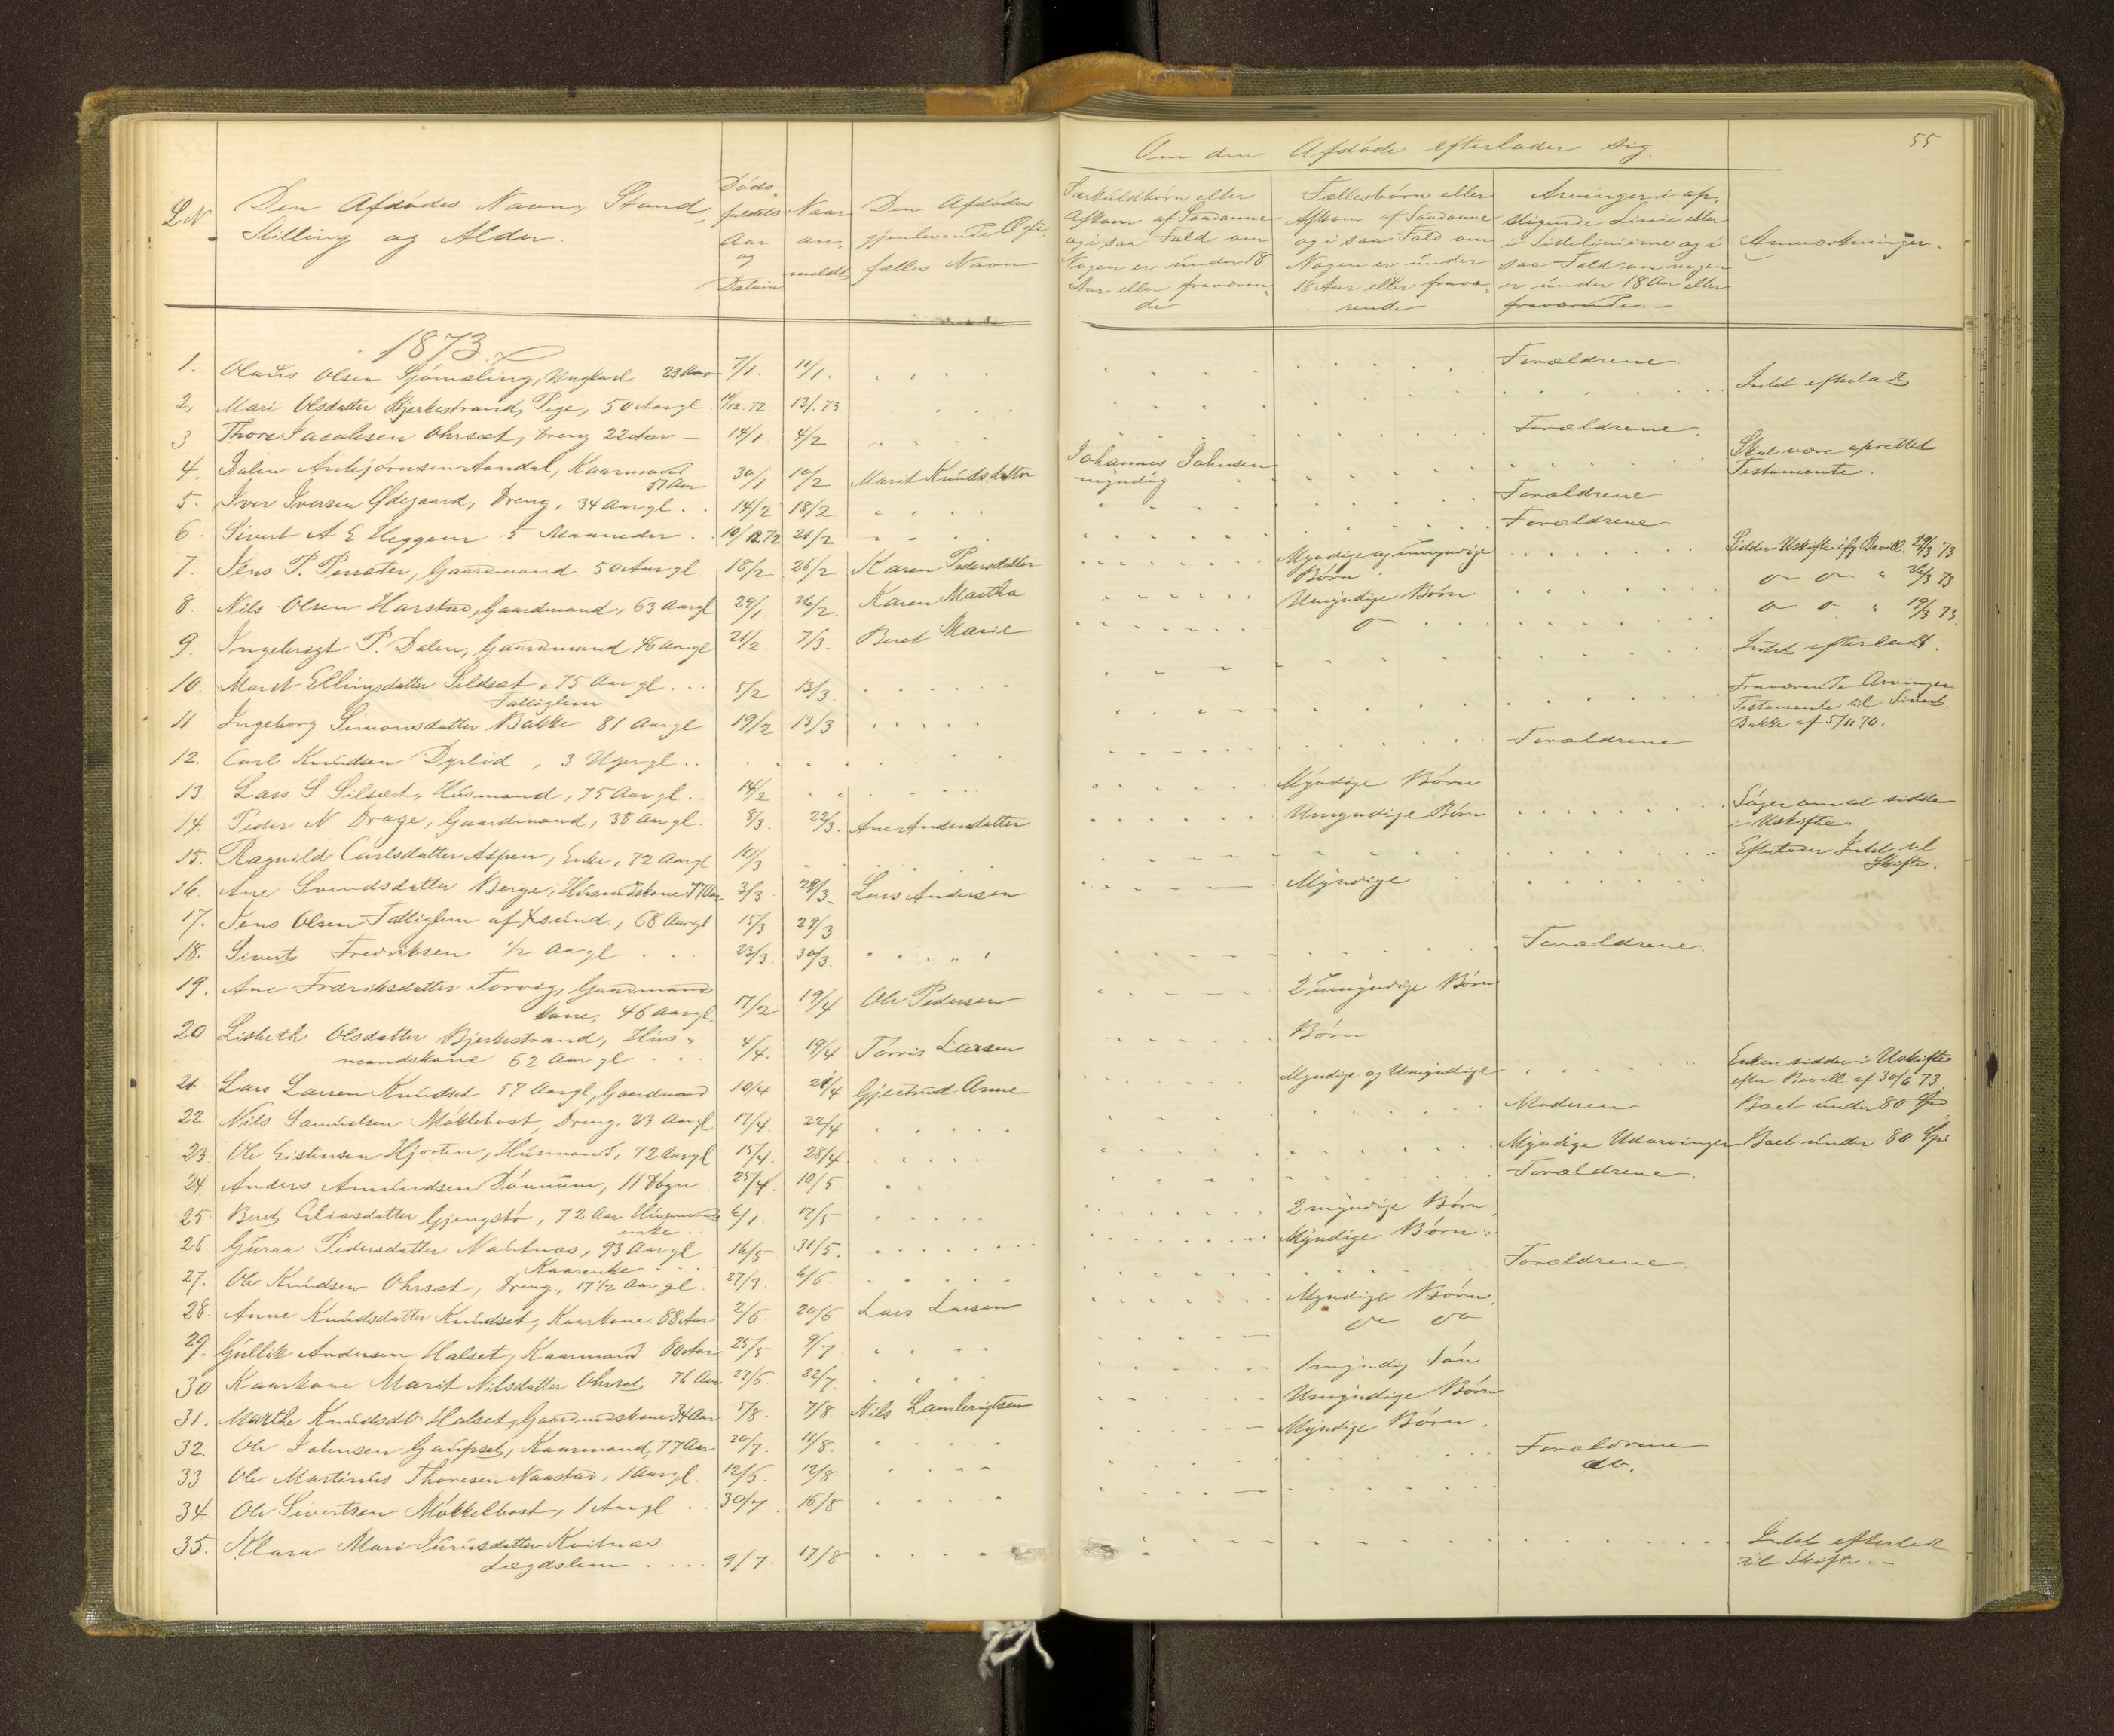 55
Om den Afdøde efterlader sig
L.N.
Den Afdødes Navn, Stand,
Stilling og Alder.
Døds-
faldets
Aar
og
Datum
Naar
an-
meldt
Den Afdødes
gjenlevende Ægte-
fælles Navn
Særkuldbørn eller
Afkom af Saadanne
og i saa Fald om
Nogen er under 18
Aar eller fraværen-
de
Fællesbørn eller
Afkom af Saadanne
og i saa Fald om
Nogen er under
18 Aar eller fravæ-
rende
Arvinger i op-
stigende Linie eller
i Sidelinierne og i
saa Fald om nogen
er under 18 Aar eller
fraværende.-
Anmærkninger.
1873.
1. Olaus Olsen Sjømæling, Ungkarl 23 Aar 7/1. 11/1. Forældrene
2, Mari Olsdatter Bjerkestrand, Pige, 50 Aar gl. 11/12.72. 13/1.73. Intet efterladt
3 Thore Jacobsen Ohrset, Dreng 22 Aar - 14/1. 4/2 Forældrene.
4. Dalen Anbjørnsen Aandal, Kaarmand 30/1 10/2 Marit Knudsdatter Johannes Johnsen Skal være oprettet
57 Aar myndig Testamente.
5. Iver Iversen Ødegaard, Dreng, 34 Aar gl. 14/2 18/2 Forældrene
6. Sivert A E Heggem 5 Maaneder. 10/12 72 21/2 Forældrene
7. Jens P. Persæter, Gaardmand 50 Aar gl. 18/2 26/2 Karen Pedersdatter Myndige og umyndige Sidder i Uskifte ifg Bevill. 29/3 73
Børn
8. Nils Olsen Harstad, Gaardmand, 63 Aar gl 29/1. 26/2. Karen Martha Umyndige Børn do do " 26/3 73
9. Ingebrigt P. Dalen, Gaardmand 46 Aar gl 21/2 7/3. Beret Marie do do do " 19/3 73.
10. Marit Ellingsdatter Sildset, 75 Aar gl... 5/2 13/3. Intet efterladt.
Fattiglem
11 Ingeborg Simonsdatter Bakke 81 Aar gl 19/2 13/3 Fraværende Arvinger
Testamente til Sivert
Bakke af 5/11 70.
12. Carl Knudsen Dyrlid, 3 Uger gl.. Forældrene
13. Lars S Silset, Husmand, 75 Aar gl.. 14/2 Myndige Børn
14. Peder N Drage, Gaardmand, 38 Aar gl. 8/3. 22/3. Ane Andersdatter Umyndige Børn Søger om at sidde
i Uskifte.
15. Ragnild Carlsdatter Aspen, Enke, 72 Aar gl 10/3 Efterlader Intet til
Skifte.
16. Ane Svendsdatter Berge, Husmdskone 77 Aar 3/3 29/3. Lars Andersen Myndige
17. Jens Olsen Fattiglem af Xsund, 68 Aar gl 15/3 29/3
18. Sivert Fredriksen 1/2 Aar gl 23/3. 30/3. Forældrene.
19. Ane Fredriksdatter Torvig, Gaardmands
kone, 46 Aar gl. 17/2 19/4 Ole Pedersen 2 umyndige Børn
20 Lisbeth Olsdatter Bjerkestrand, Hus-
mandskone 62 Aar gl 4/4. 19/4 Torris Larsen Børn
21. Lars Larsen Knudset 57 Aar gl, Gaardmand 10/4 21/4 Gjertrud Anne Myndige og Umyndige Enken sidder i Uskifte
efter Bevill. af 30/6 73.
22. Nils Samuelsen Møklebost, Dreng, 23 Aar gl 17/4. 22/4 Moderen Boet under 80 Spd
23. Ole Eistensen Hjorten, Husmand, 72 Aar gl 15/4. 28/4 Myndige Udarvinger Boet under 80 Spd
24. Anders Amundsen Dønnum, 11 Døgn 25/4. 10/5. Forældrene.
25 Beret Eliasdatter Gjengstø, 72 Aar Husmands 6/1. 17/5 2 myndige Børn
enke..
26. Guraa Pedersdatter Nautnæs, 93 Aar gl 16/5 31/5. Myndige Børn
Kaarenke
27. Ole Knudsen Ohrset, Dreng, 17 1/2 Aar gl. 27/3. 6/6. Forældrene.
28. Anne Knudsdatter Knudset, Kaarkone 88 Aar 2/6. 20/6 Lars Larsen Myndige Børn
29. Gullik Andersen Halset, Kaarmand 80 Aar 25/5 9/7. do do
30 Kaarkone Marit Nilsdatter Ohrset 76 Aar 27/6. 22/7. 1 myndig Søn
31. Marthe Knudsdtr Halset, Gaardmdskone 34 Aar 5/8. 7/8. Nils Lambrigtsen Umyndige Børn
32. Ole Johnsen Gaupset, Kaarmand, 77 Aar 20/7. 11/8. Myndige Børn.
33 Ole Martinus Thoresen Naastad, 1 Aar gl. 12/6. 12/8 Forældrene
34 Ole Sivertsen Møkkelbost, 1 Aar gl 30/7 16/8 do.
35. Klara Mari Juriusdatter Kvitnæs
Lægdslem 9/7. 17/8 Intet efterladt
til Skifte.-